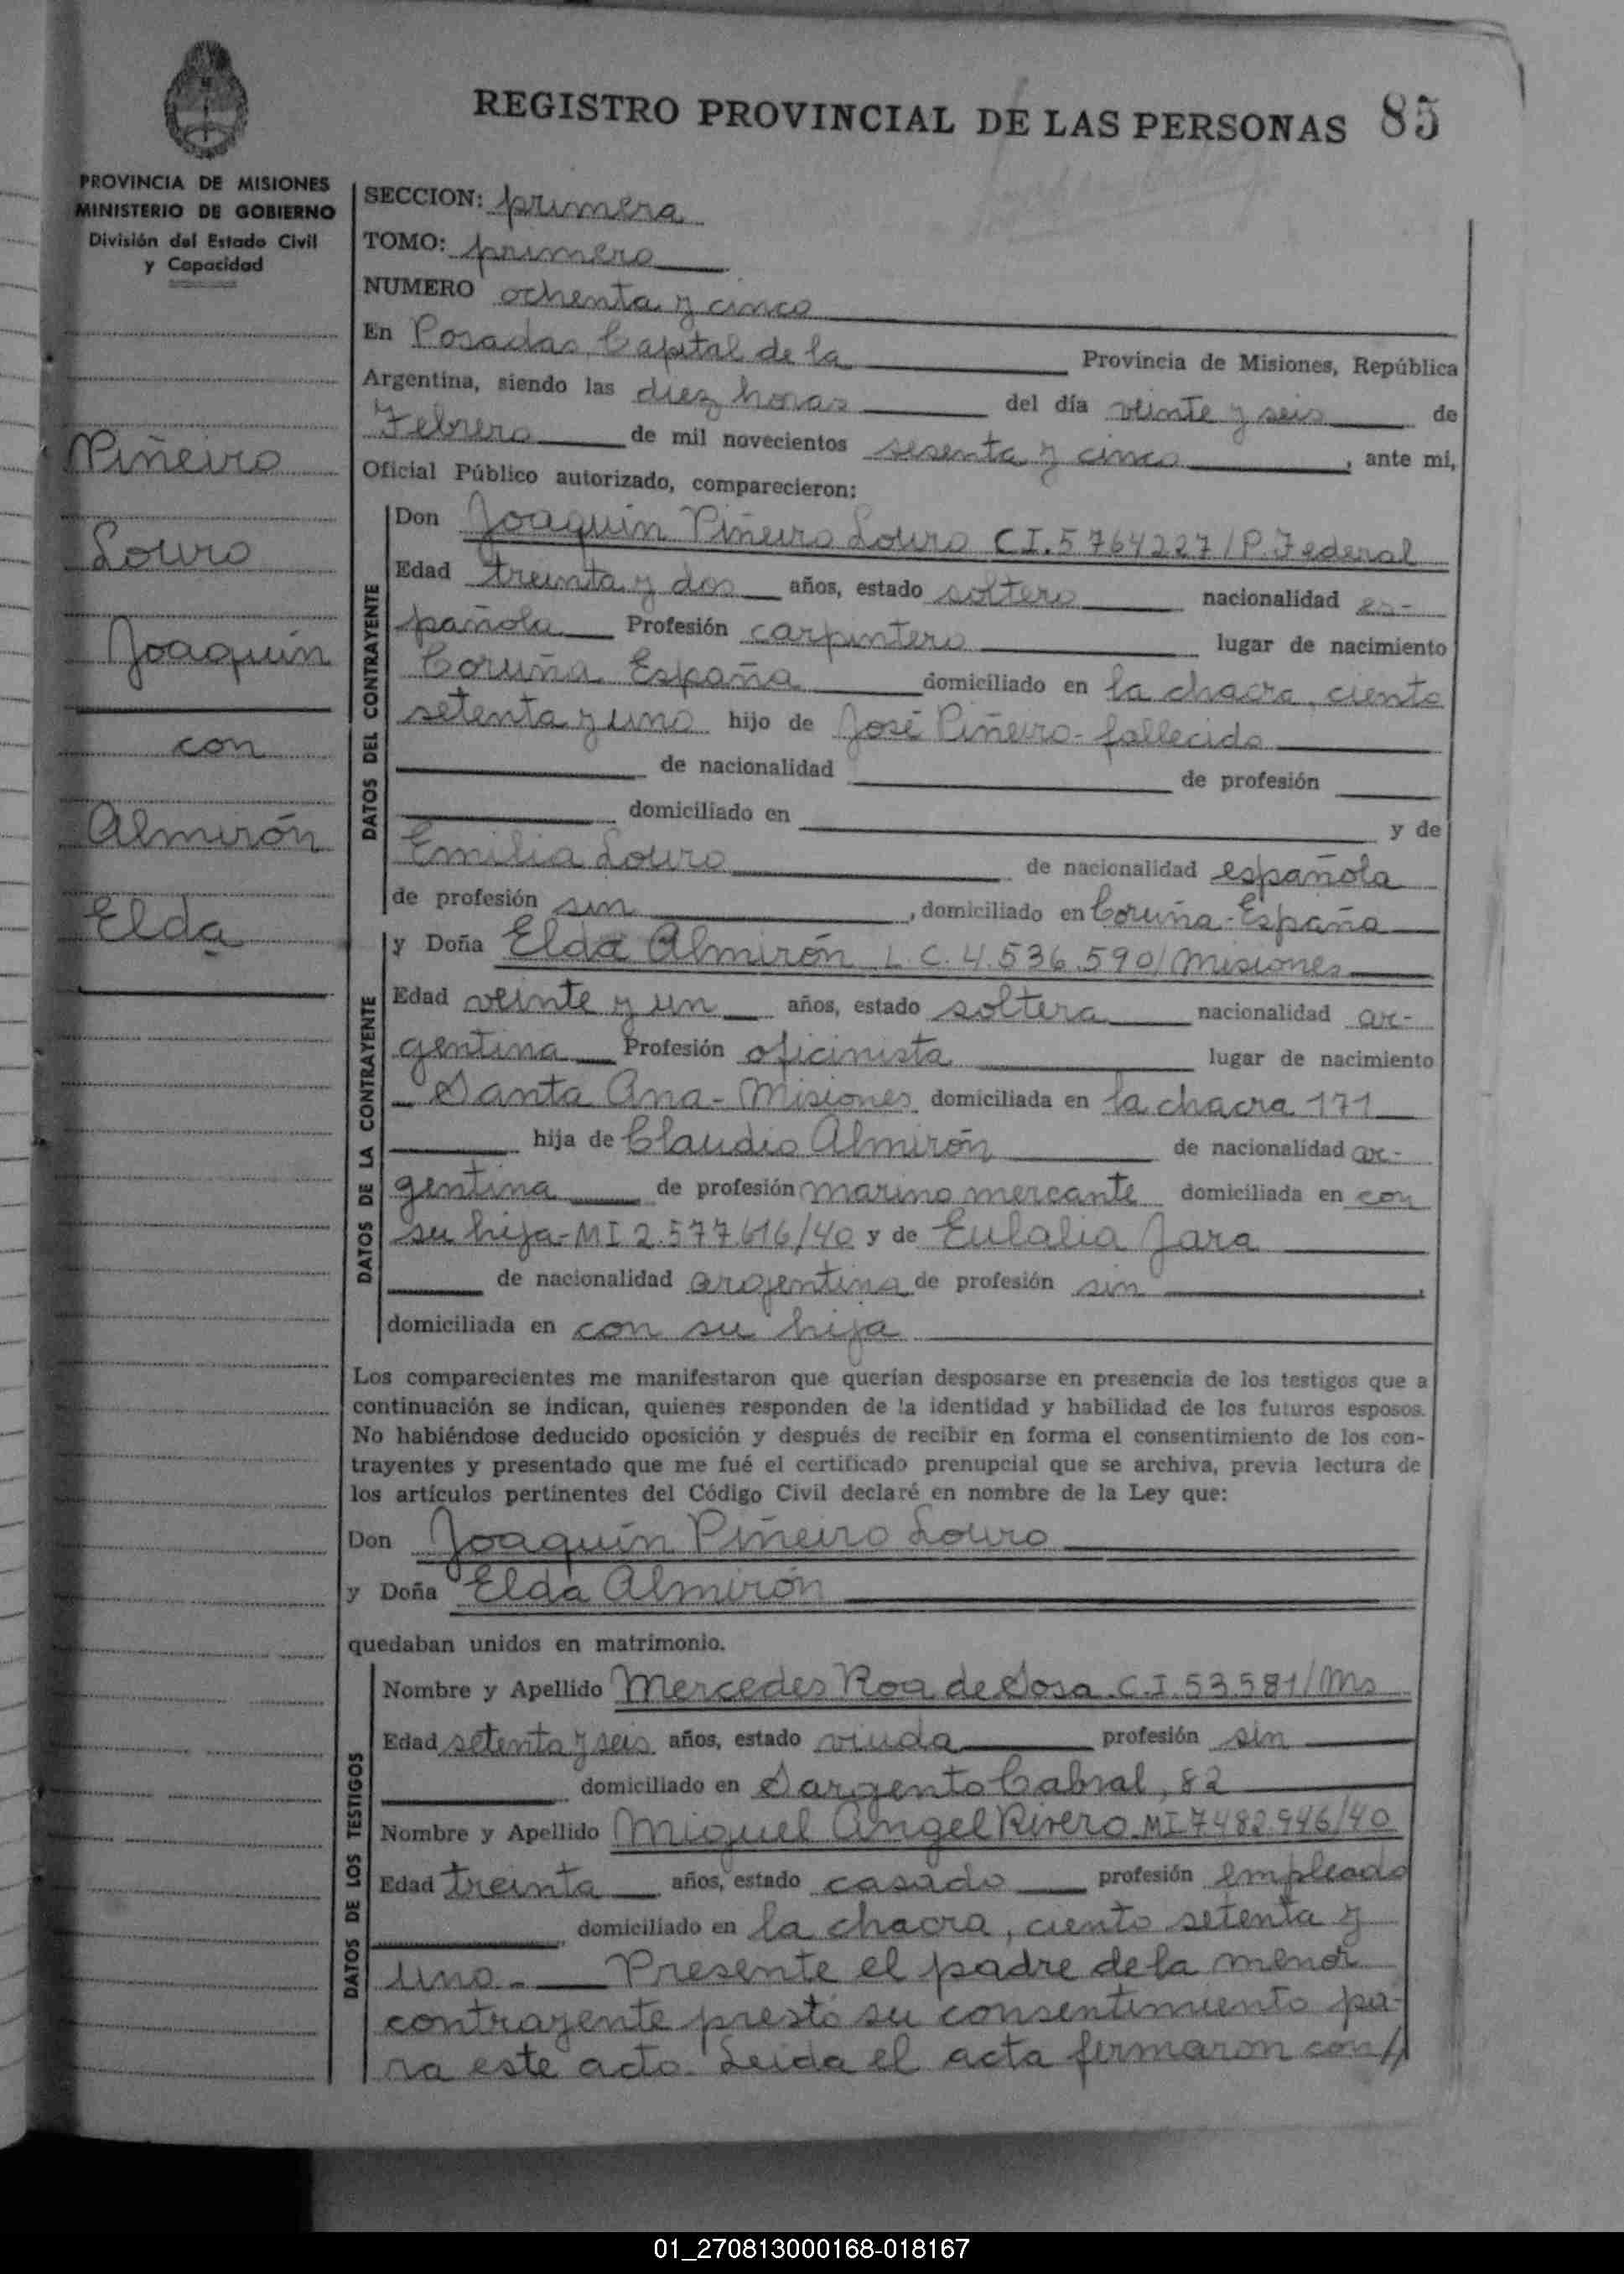 REGISTRO PROVINCIAL DE LAS PERSONAS 85
PROVINCIA DE MISIONES
MINISTERIO DE GOBIERNO
División del Estado Civil
y Capacidad
Piñeiro
Louro
Joaquín
con
Almirón
Elda
SECCION: primera
TOMO: primero
NUMERO ochenta y cinco
En Posadas Capital de la Provincia de Misiones, República
Argentina, siendo las diez horas del día veinte y seis de
Febrero de mil novecientos sesenta y cinco, ante mi,
Oficial Público autorizado, comparecieron:
DATOS DEL CONTRAYENTE
Don Joaquín Piñeiro Louro CI. 5764227/P. Federal
Edad treinta y dos años, estado soltero nacionalidad es-
pañola Profesión carpintero lugar de nacimiento
Coruña España domiciliado en la chacra, ciento
setenta y uno hijo de José Piñeiro- fallecido
de nacionalidad de profesión
domiciliado en y de
Emilia Louro de nacionalidad española
de profesión sin, domiciliado en Coruña-España
DATOS DE LA CONTRAYENTE
y Doña Elda Almirón L.C. 4.536.590/Misiones
Edad veinte y un años, estado soltera nacionalidad ar-
gentina Profesión oficinista lugar de nacimiento
Santa Ana- Misiones domiciliada en la chacra 171
hija de Claudio Almirón de nacionalidad ar-
gentina de profesión marino mercante domiciliada en con
su hija-MI 2.577.616/40 y de Eulalia Jara
de nacionalidad argentina de profesión sin,
domiciliada en con su hija
Los comparecientes me manifestaron que querían desposarse en presencia de los testigos que a
continuación se indican, quienes responden de la identidad y habilidad de los futuros esposos.
No habiéndose deducido oposición y después de recibir en forma el consentimiento de los con-
trayentes y presentado que me fué el certificado prenupcial que se archiva, previa lectura de
los artículos pertinentes del Código Civil declaré en nombre de la Ley que:
Don Joaquín Piñeiro Louro
y Doña Elda Almirón
quedaban unidos en matrimonio.
DATOS DE LOS TESTIGOS
Nombre y Apellido Mercedes Roa de Sosa. C.I. 53.581/Ms
Edad setenta y seis años, estado viuda profesión sin
domiciliado en Sargento Cabral, 82
Nombre y Apellido Miguel Angel Rivero MI 7482.946/40
Edad treinta años, estado casado profesión empleado
domiciliado en la chacra, ciento setenta y
uno.- Presente el padre de la menor
contrayente prestó su consentimiento pa-
ra este acto. Leida el acta firmaron con//
01_270813000168-018167